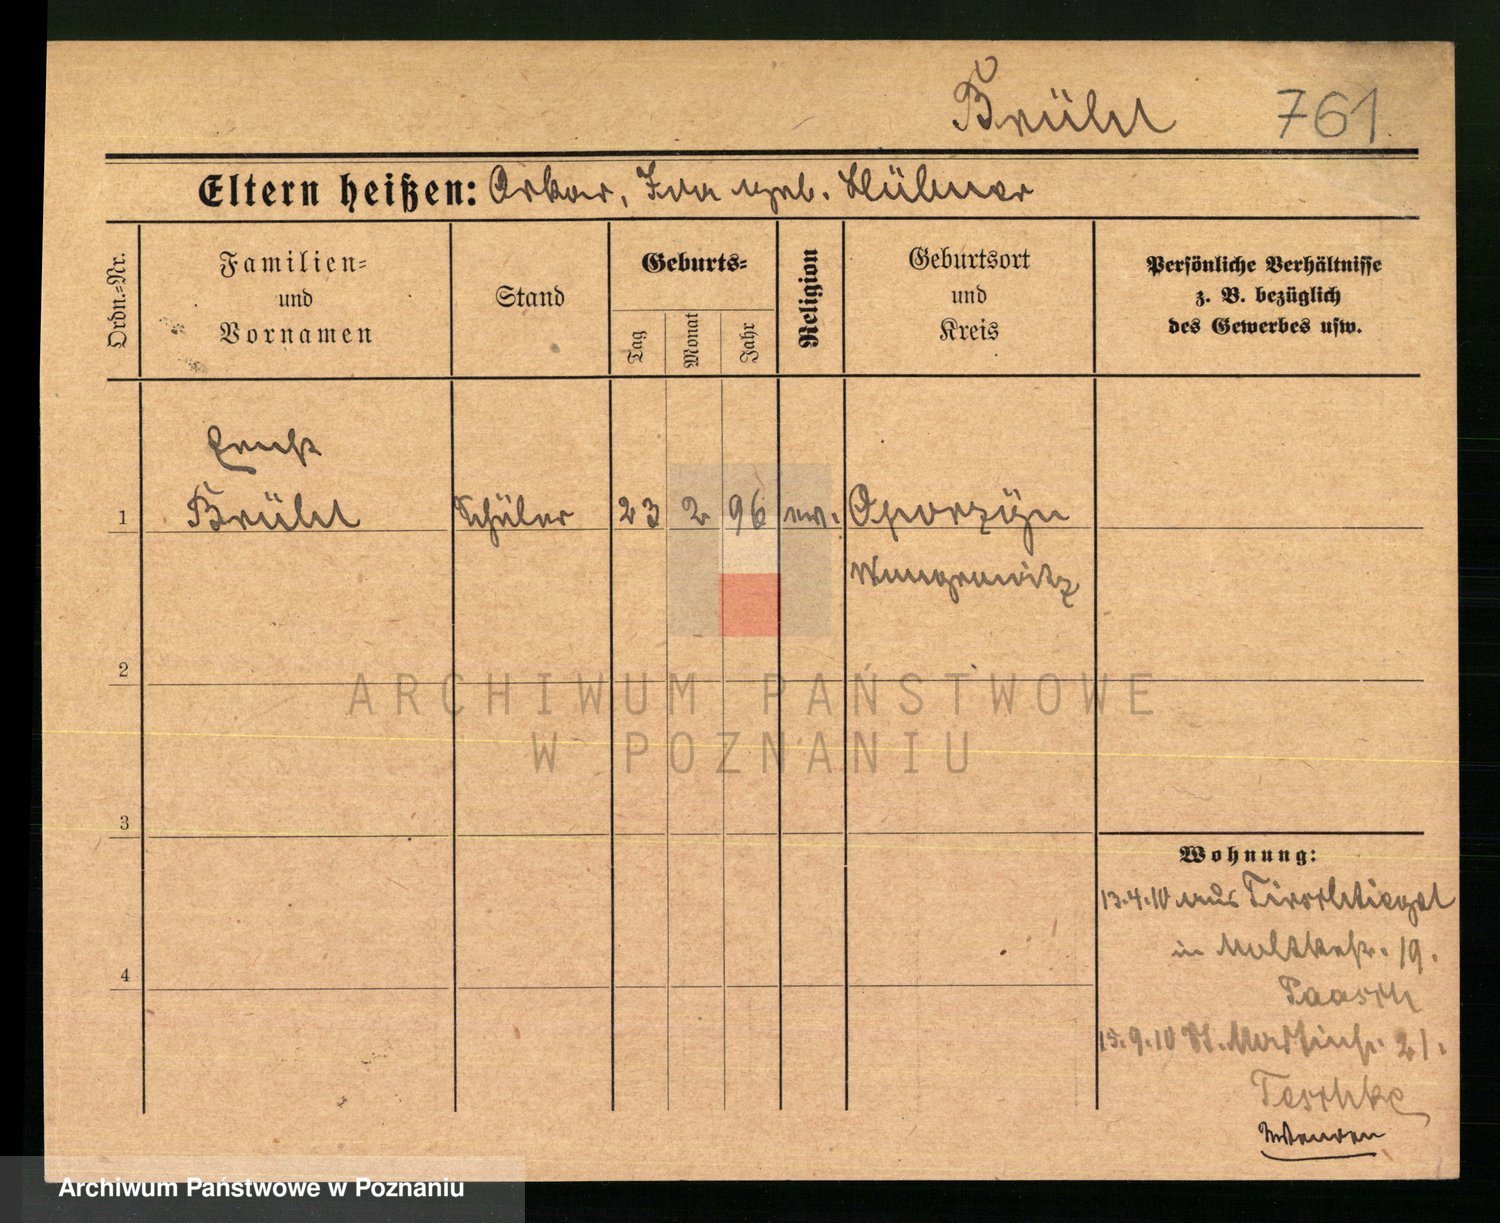 Brühl 761
Eltern heißen: Oskar, Ida geb. Hübner
Ordn.-Nr.
Familien- und Vornamen
Stand
Geburts-
Tag
Monat
Jahr
Religion
Geburtsort und Kreis
Persönliche Verhältnisse
z. B. bezüglich
des Gewerbes usw.
Ernst
1 Brühl Schüler 23 2 96 ev.
Wongrowitz
2
ARCHIWUM PAŃSTWOWE
W POZNANIU
3
4
Wohnung:
13.4.10 aus Tirschtiegel
in Moltkestr. 19.
Paasch
15.9.10 St. Martinstr. 21.
Teschke
Wenden
Archiwum Państwowe w Poznaniu